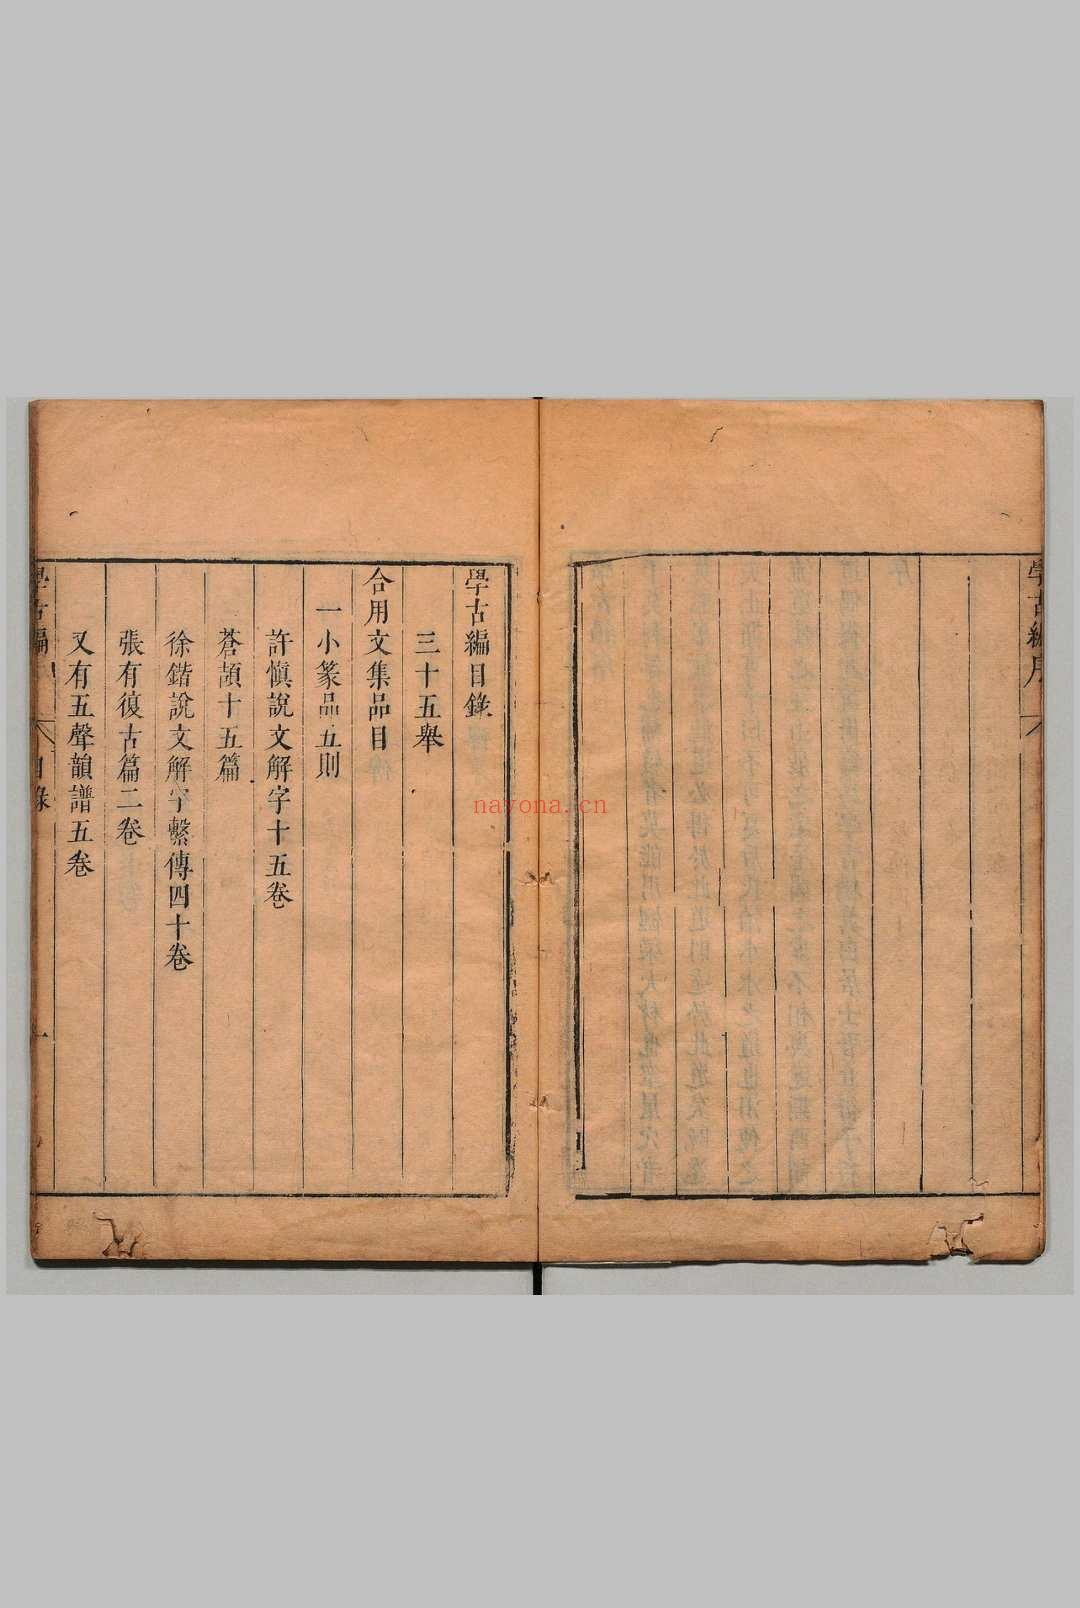 學古編序
學古編目錄
三十五舉
合用文集品目
一小篆品五則
許慎說文解字十五卷
蒼頡十五篇
徐鍇說文解字繫傳四十卷
張有復古篇二卷
又有五聲韻譜五卷
學古編
目錄
一
nayona.cn